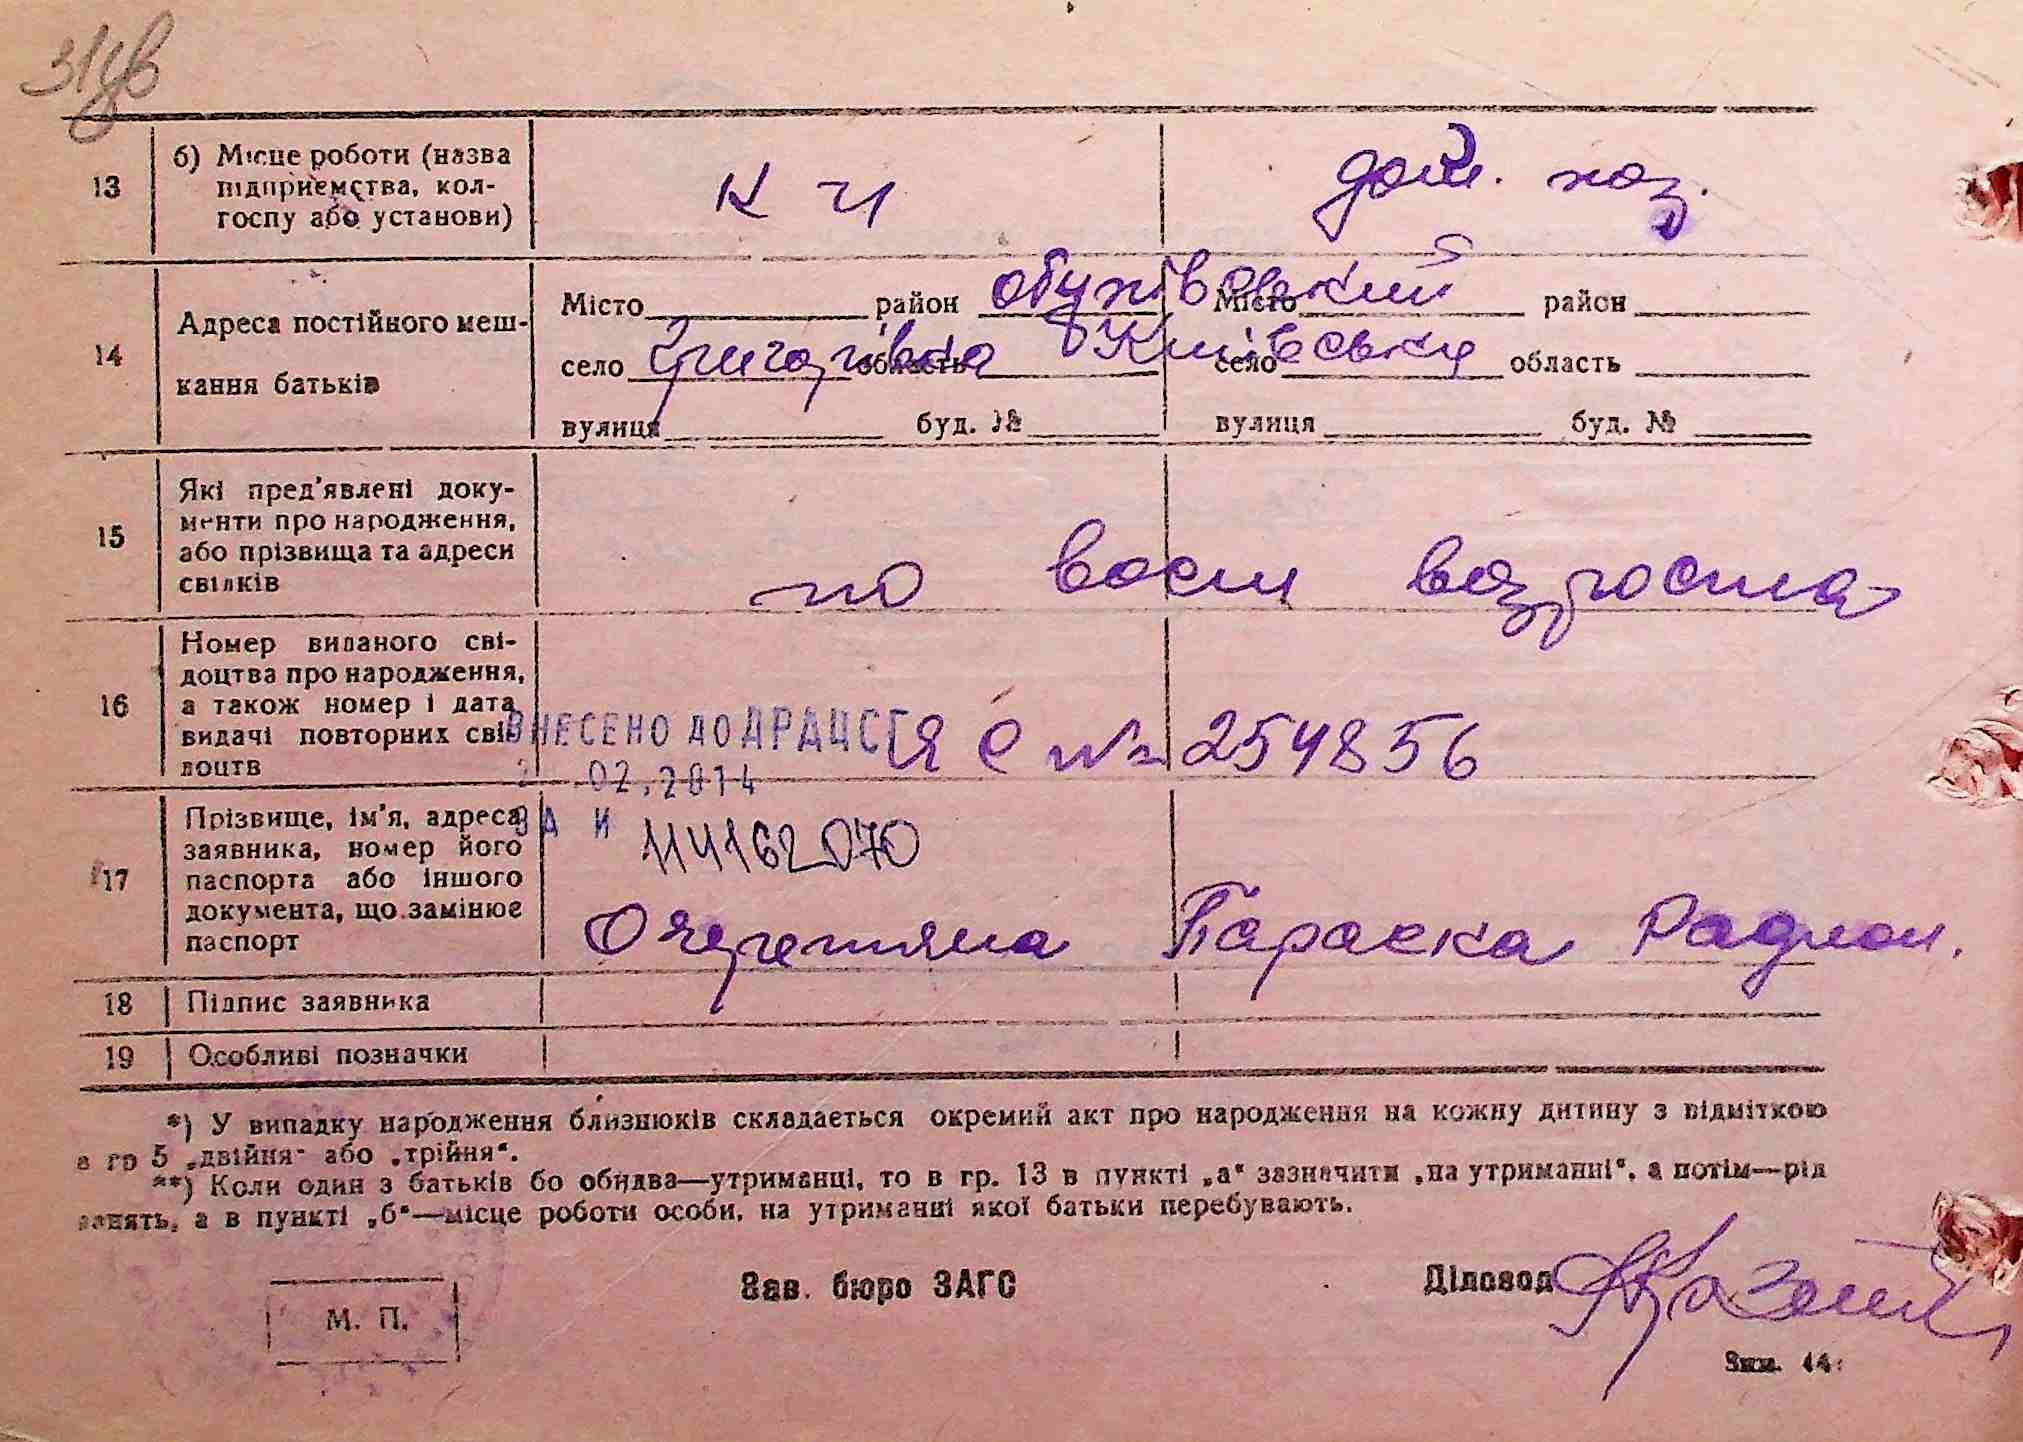 31 зв
13
б) Місце роботи (назва
підприємства, кол-
госпу або установи)
К Ч
дом. хоз.
14
Адреса постійного меш-
кання батьків
Місто район Обухівський Місто район
село Григорівка область Київська село область
вулиця буд. № вулиця буд. №
15
Які пред'явлені доку-
менти про народження,
або прізвища та адреси
свідків
по восп возроста
16
Номер виданого сві-
доцтва про народження,
а також номер і дата
видачі повторних сві-
доцтв
ВНЕСЕНО ДО ДРАЦСГ
ЯС № 254856
.02.2014
ЗА №
114162070
17
Прізвище, ім'я, адреса
заявника, номер його
паспорта або іншого
документа, що замінює
паспорт
Параска Радион.
18 Підпис заявника
19 Особливі позначки
*) У випадку народження близнюків складається окремий акт про народження на кожну дитину з відміткою
в гр 5 „двійня" або „трійня".
**) Коли один з батьків бо обидва—утриманці, то в гр. 13 в пункті „а" зазначити „на утриманні", а потім—рід
занять, а в пункті „б"—місце роботи особи, на утриманні якої батьки перебувають.
М. П.
Зав. бюро ЗАГС
Діловод
Зим. 44